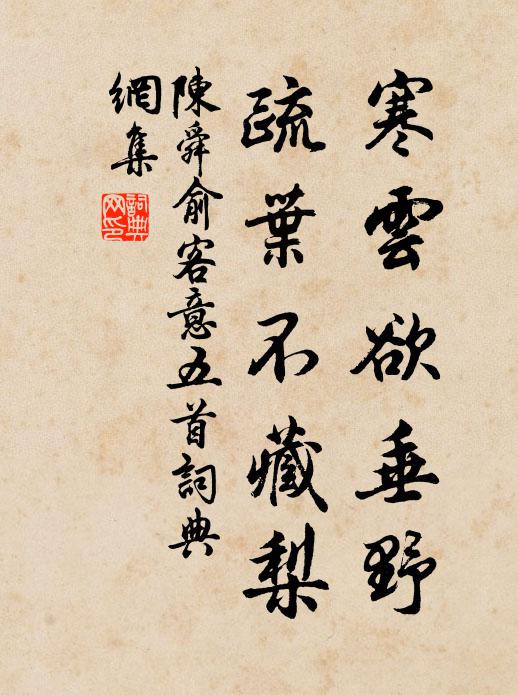 寒雲欲垂野
疏葉不藏梨
陳舜俞客意五首詞典
網集
詞典
网印